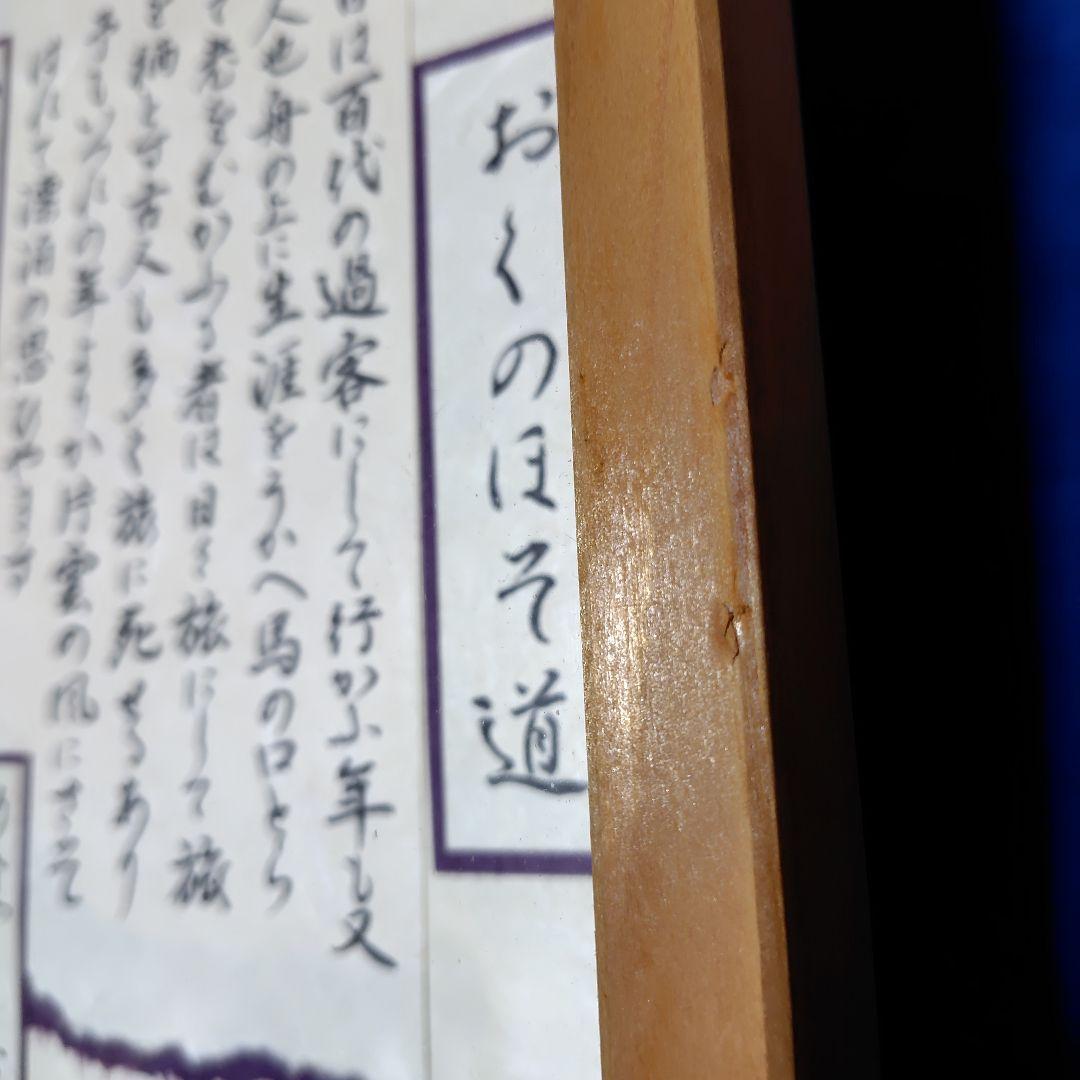 おくのほそ道
日は百代の過客にして行かふ年も又
人也舟の上に生涯をうかへ馬の口とら
て老をむかふる者は日々旅にして旅
を栖とす古人も多く旅に死せるあり
予もいつれの年よりか片雲の風にさそ
はれて漂泊の思ひやます